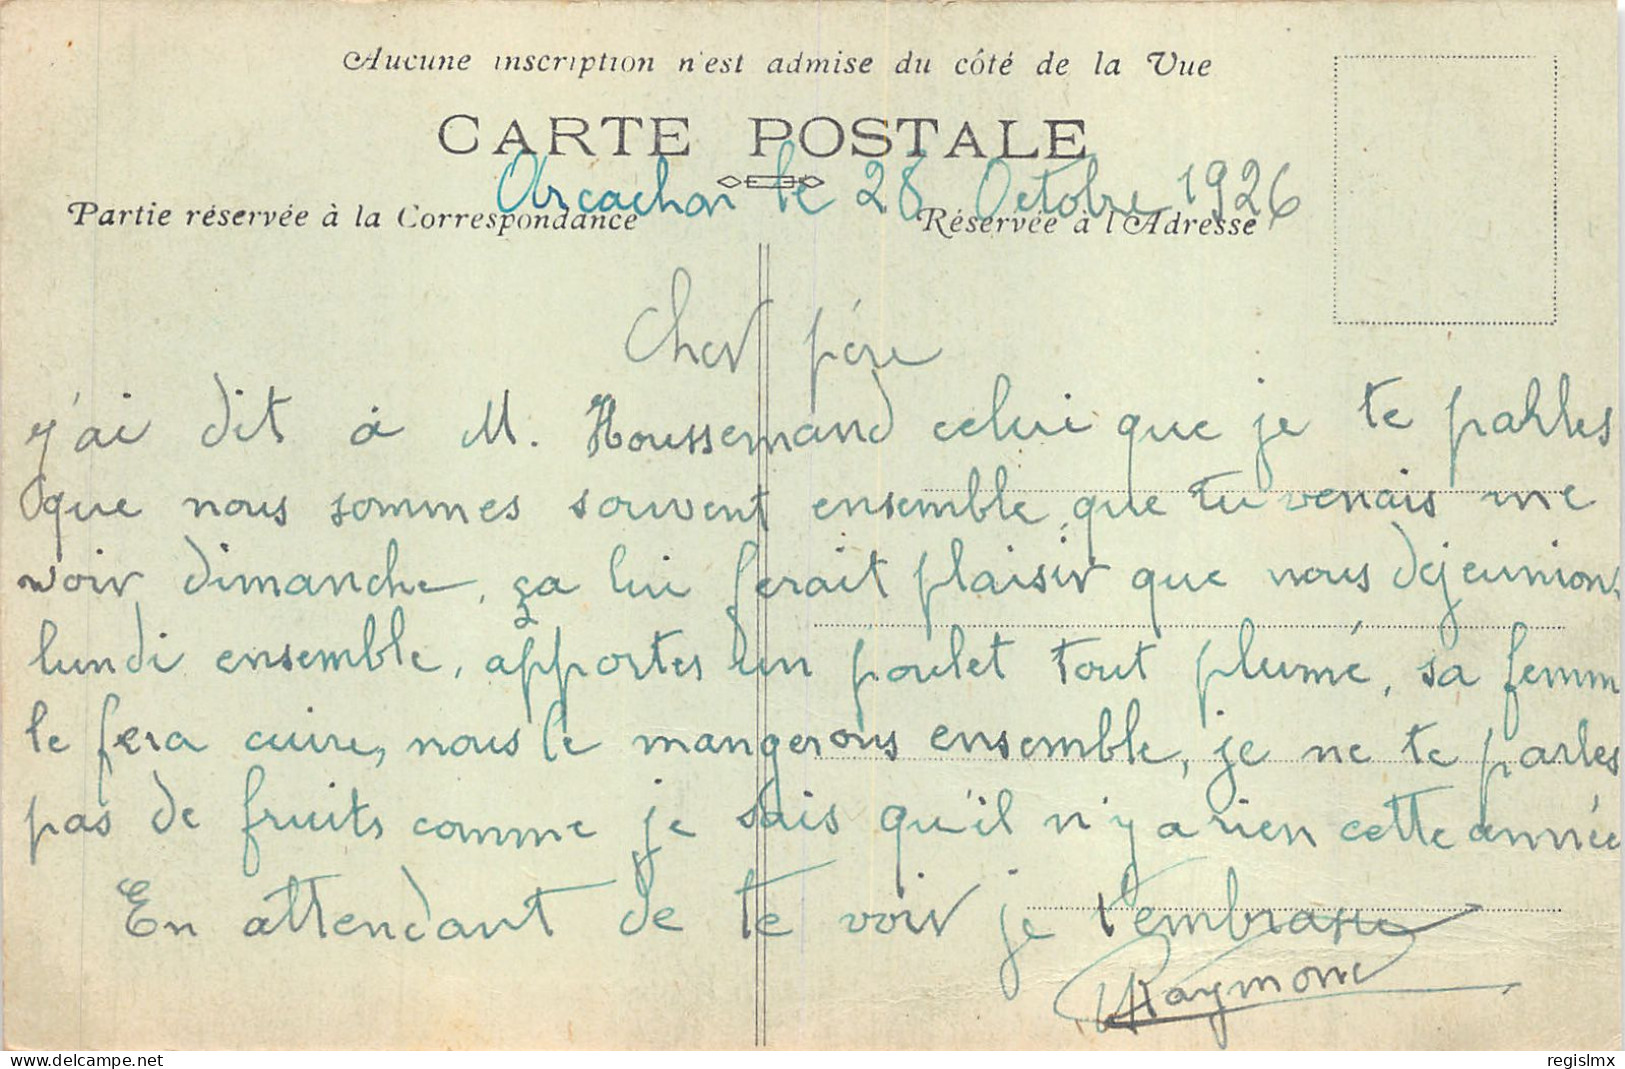 Aucune inscription n'est admise du côté de la Vue
CARTE POSTALE
Arcachon le 28 Octobre 1926
Partie réservée à la Correspondance
Réservée à l'Adresse
Cher père
j'ai dit à M. Houssemand celui que je te parlles
que nous sommes souvent ensemble, que tu venais me
voir dimanche, ça lui ferait plaisir que nous déjeunions
lundi ensemble, apportes un poulet tout plumé, sa femm
le fera cuire, nous le mangerons ensemble, je ne te parles
pas de fruits comme je sais qu'il n'y a rien cette année
En attendant de te voir je t'embrasse
Raymond
delcampe.net
regislmx